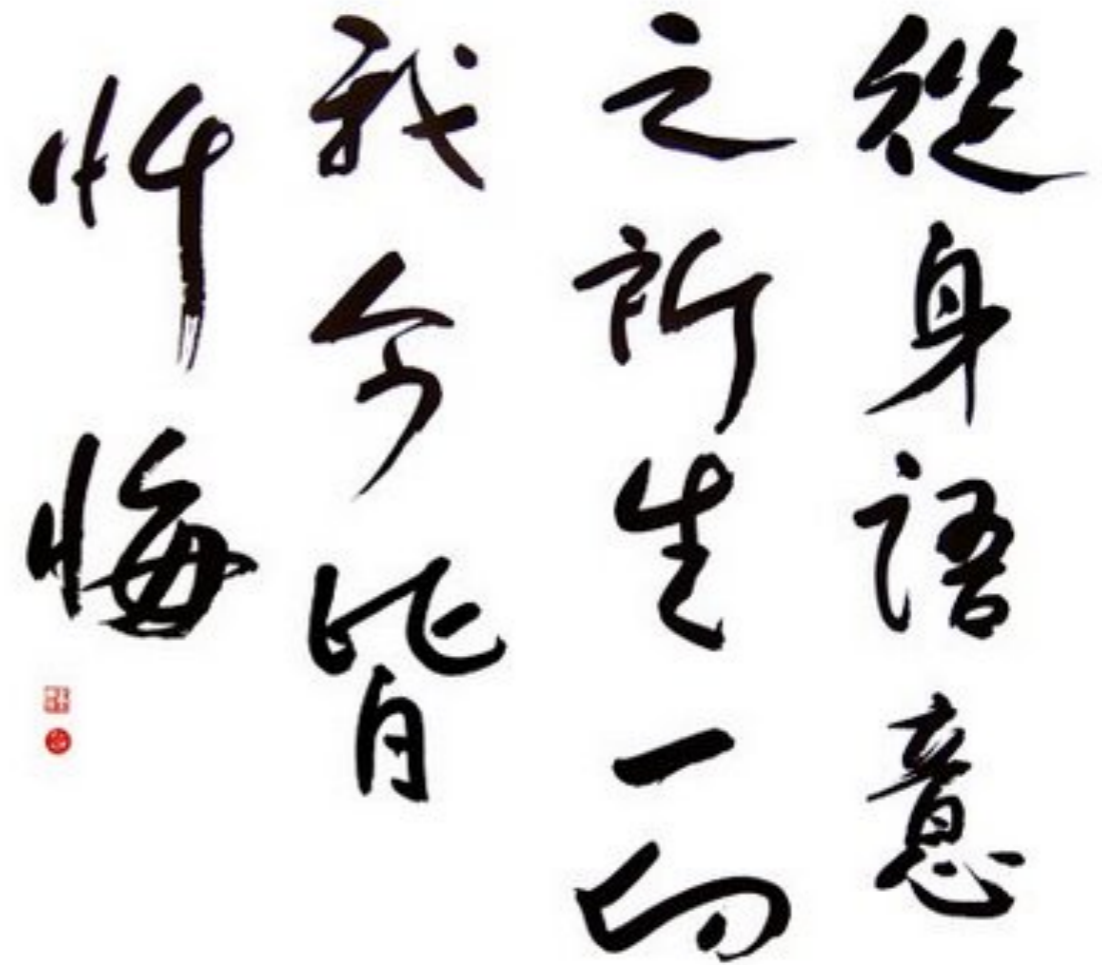 從身語意
之所生一切
我今皆
懺悔